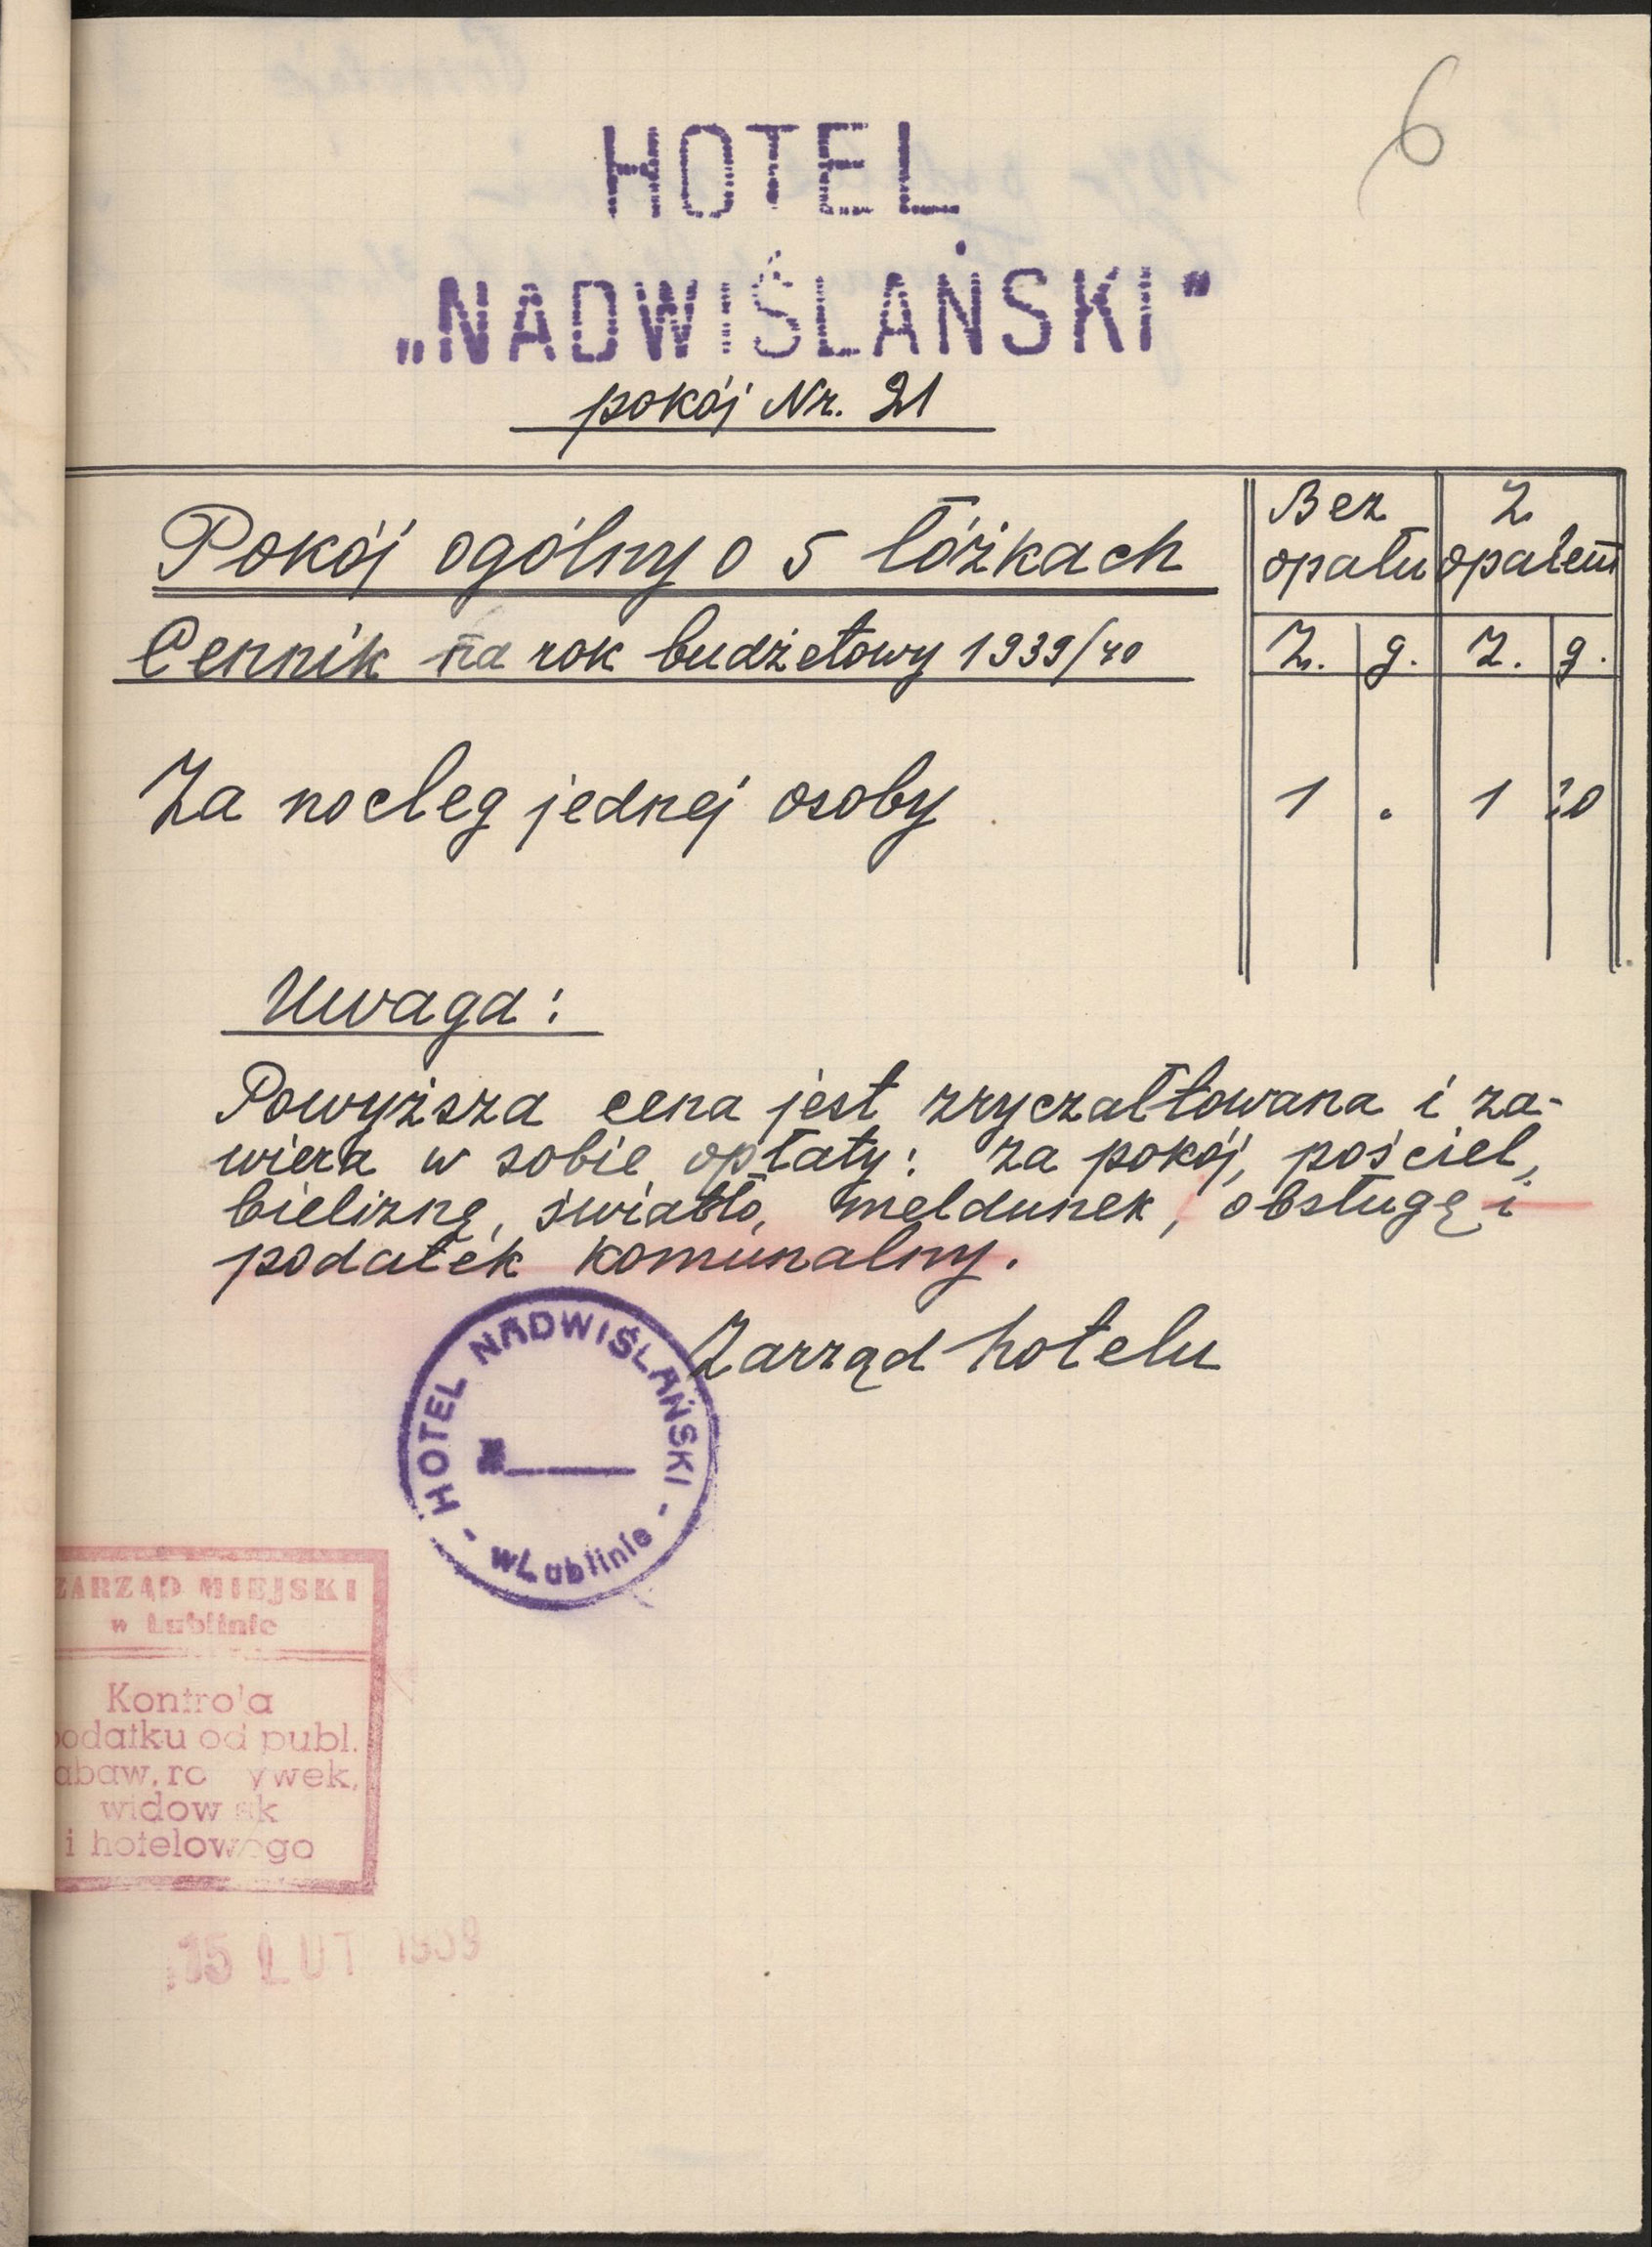 6
HOTEL
„NADWIŚLAŃSKI"
pokój Nr. 21
Pokój ogólny o 5 łóżkach
Bez opału
Z opałem
Cennik na rok budżetowy 1939/40
Z. g. Z. g.
Za nocleg jednej osoby 1 . 1 20
Uwaga:
Powyższa cena jest zryczałtowana i za-
wiera w sobie opłaty: za pokój, pościel,
bieliznę, światło, meldunek, obsługę i
podatek komunalny.
Zarząd hotelu
HOTEL NADWIŚLAŃSKI
- w Lublinie -
ZARZĄD MIEJSKI
w Lublinie
Kontrola
podatku od publ.
abaw, ro ywek,
widow sk
i hotelowego
15 LUT 1939